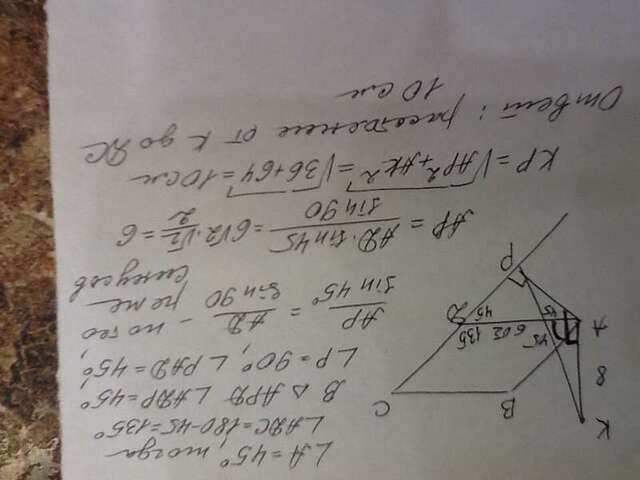 ∠A = 45°, тогда
∠ADC = 180 - 45 = 135°
В △ APD ∠ADP = 45°
∠P = 90°, ∠PAD = 45°,
AP / sin 45° = AD / sin 90 - по тео
реме синусов
AP = AD · sin 45 / sin 90 = 6√2 · √2 / 2 = 6
KP = √AP² + AK² = √36 + 64 = 10 см
Ответ: расстояние от K до DC
10 см
K
8
A
B
C
D
P
45
45
45
6√2
135